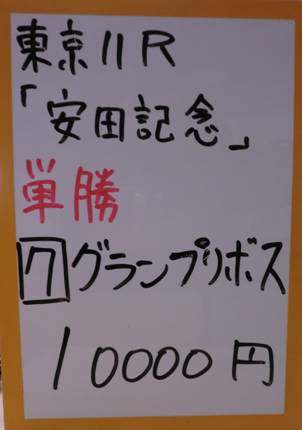 東京11R
「安田記念」
単勝
7グランプリボス
10000円